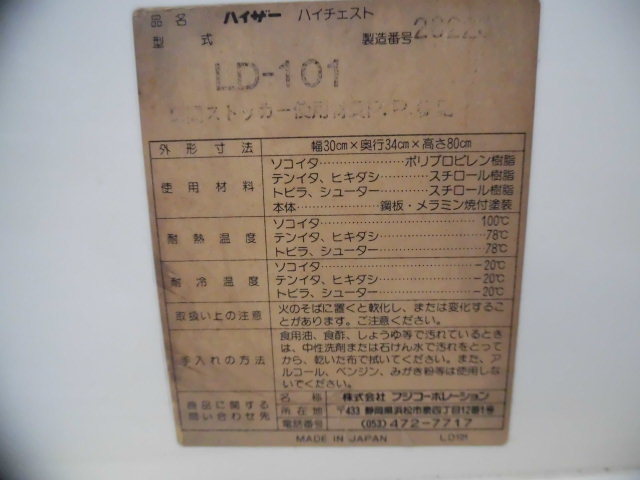 品名 ハイザー ハイチェスト
型式 製造番号
LD-101
ストッカー使用
外形寸法 幅30cm×奥行34cm×高さ80cm
使用材料 ソコイタ…………………ポリプロピレン樹脂
テンイタ、ヒキダシ…………スチロール樹脂
トビラ、シューター…………スチロール樹脂
本体………………鋼板・メラミン焼付塗装
耐熱温度 ソコイタ…………………………100℃
テンイタ、ヒキダシ………………78℃
トビラ、シューター………………78℃
耐冷温度 ソコイタ…………………………-20℃
テンイタ、ヒキダシ………………-20℃
トビラ、シューター………………-20℃
取扱い上の注意 火のそばに置くと軟化し、または変化するこ
とがあります。ご注意ください。
手入れの方法 食用油、食酢、しょうゆ等で汚れているとき
は、中性洗剤または石けん水で汚れをとって
から、乾いた布で拭いてください。また、ア
ルコール、ベンジン、みがき粉等は使用しな
いでください。
商品に関する
問い合わせ先
名称 株式会社 フジコーポレーション
所在地 〒433 静岡県浜松市葵四丁目12番1号
電話番号 (053)472-7717
MADE IN JAPAN LD101